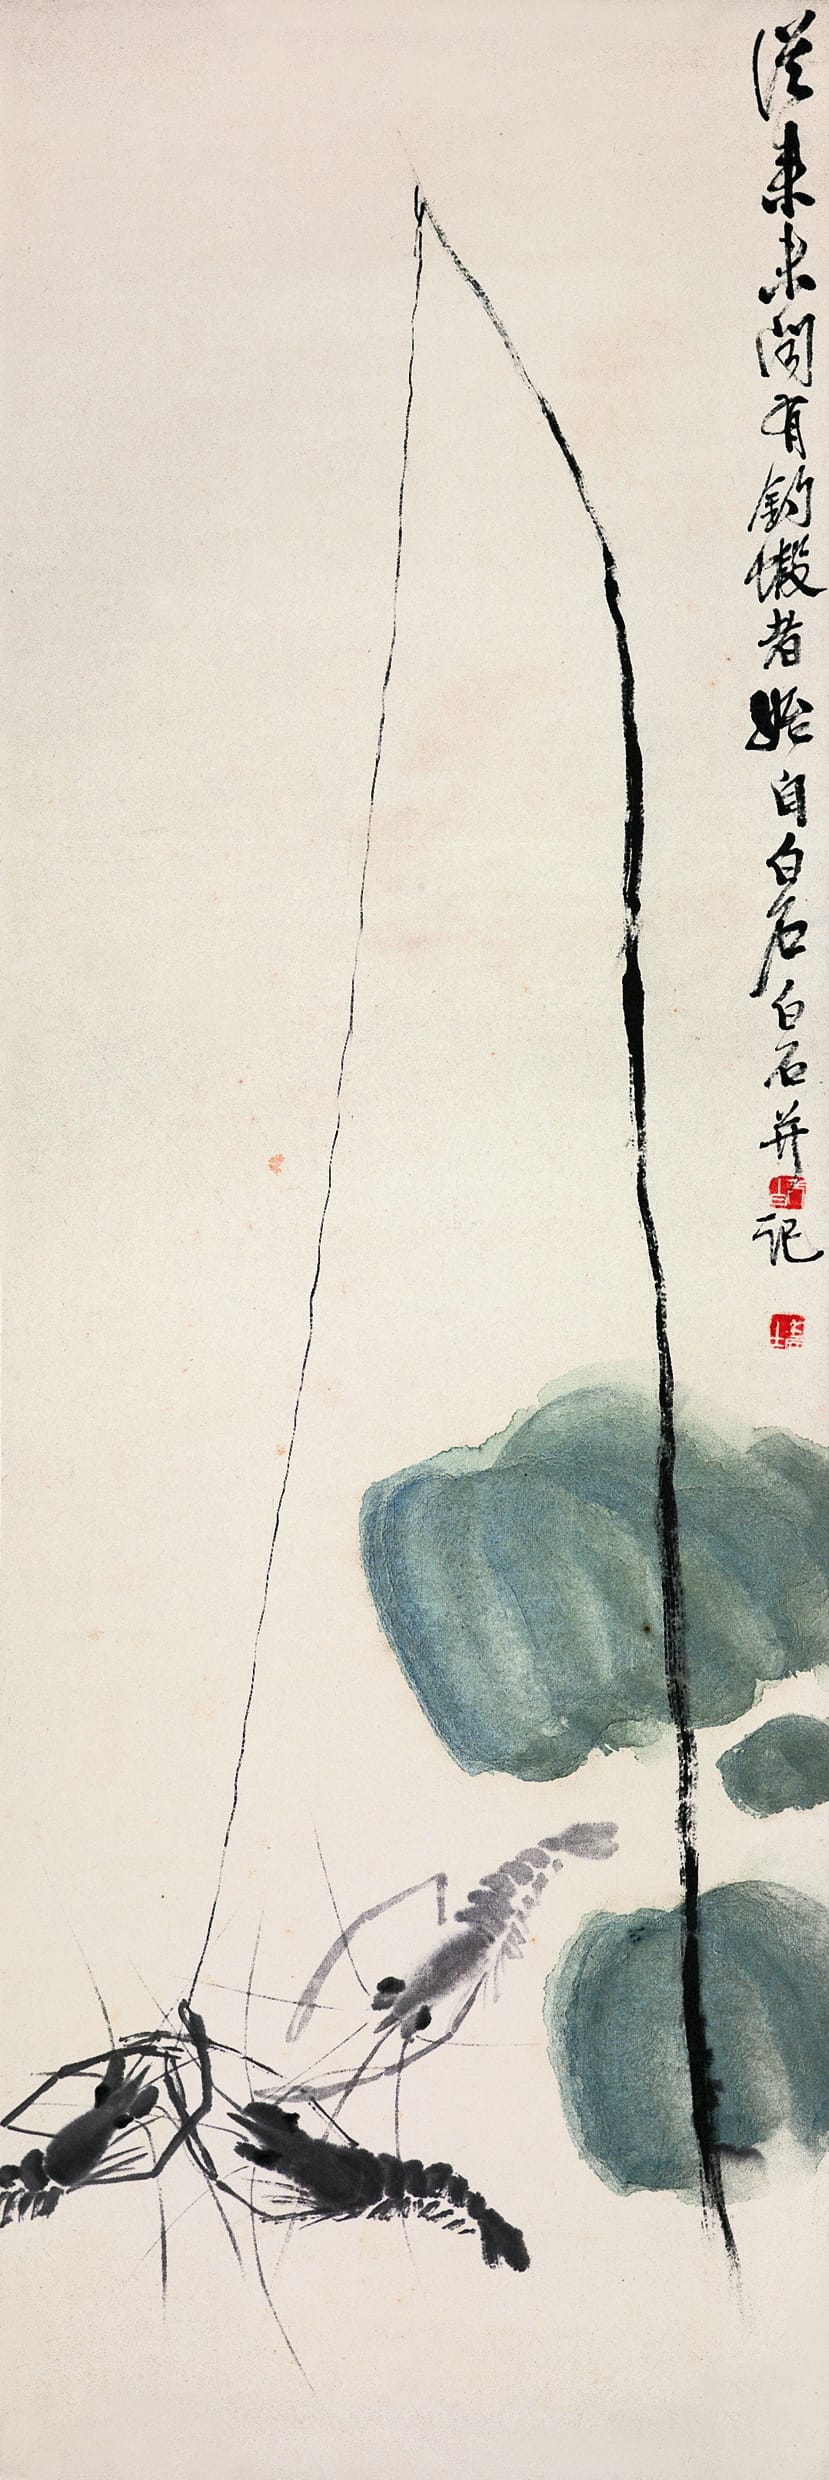 從来未聞有釣蝦者始自白石白石并記